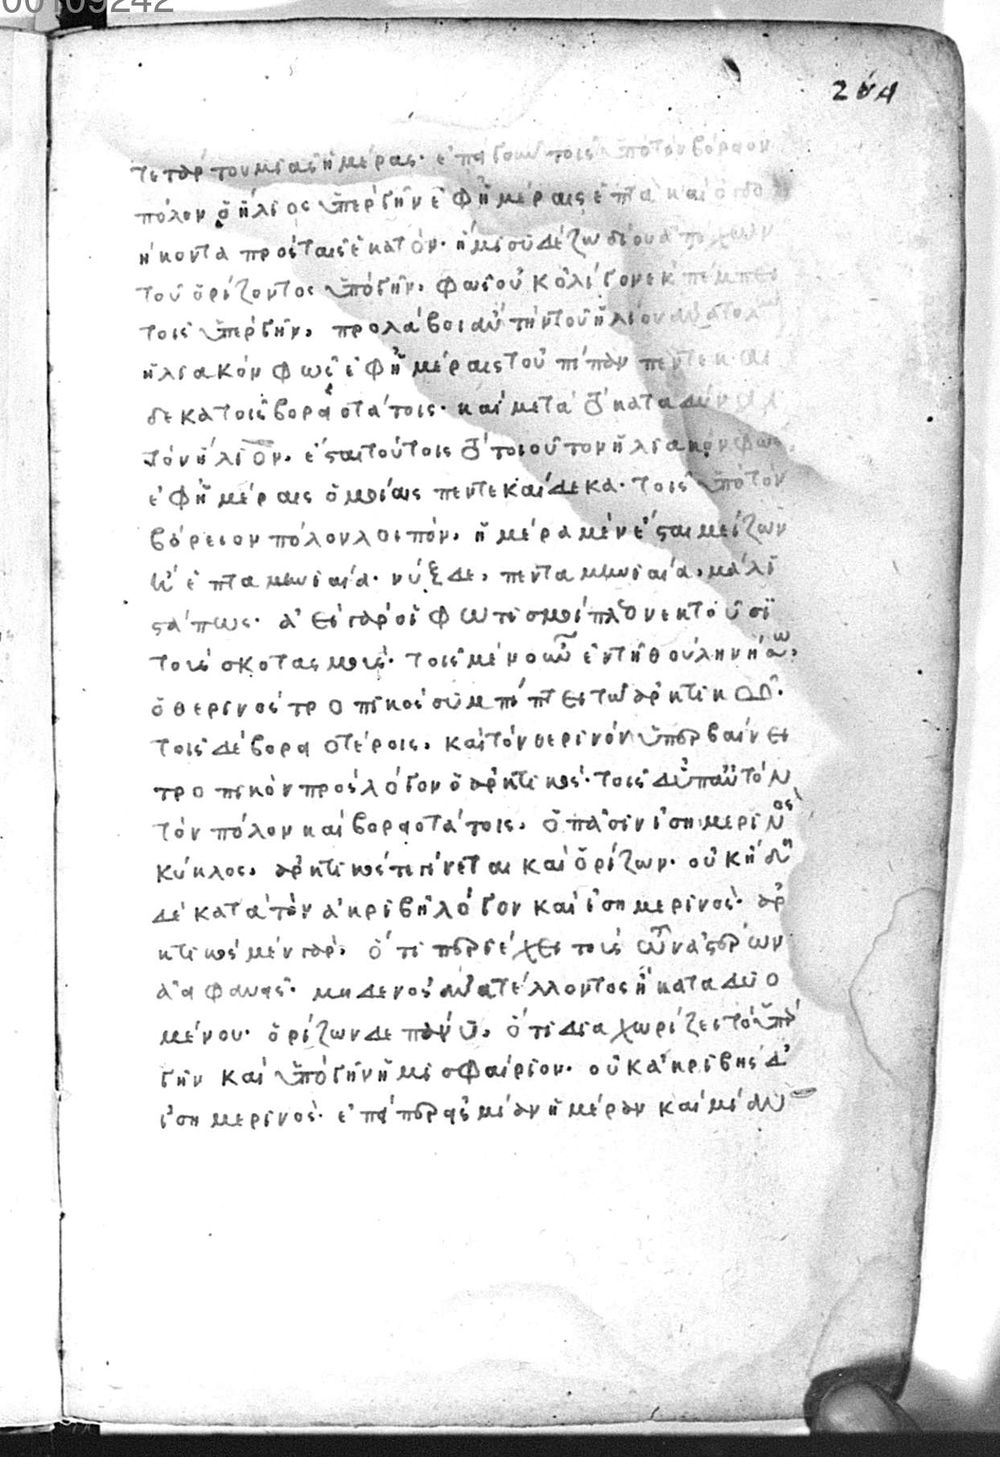 00109242
204
τετάρτου μιᾶς ἡμέρας· ἐπεὶ γοῦν τοῖς ὑπὸ τὸν βόρειον
πόλον ὁ ἥλιος ὑπὲρ γῆν ἐφ' ἡμέραις ἑπτὰ καὶ ὀγδο
ήκοντα πρὸς ταῖς ἑκατόν· ἥμισυ δὲ ζωδίου
τοῦ ὁρίζοντος ὑπὸ γῆν, φῶς οὐκ ὀλίγον ἐκπέμπει
τοῖς ὑπὲρ γῆν, προλάβοι ἂν τὴν τοῦ ἡλίου ἀνατολ
ἡλιακὸν φῶς ἐφ' ἡμέραις που πεντεκαι
δεκα τοῖς βορειοτάτοις· καὶ μετὰ τὸ καταδύναι
τὸν ἥλιον, ἔσται τούτοις τὸ τοιοῦτον ἡλιακὸν φῶς,
ἐφ' ἡμέραις ὁμοίαις πεντεκαίδεκα· τοῖς ὑπὸ τὸν
βόρειον πόλον λοιπόν, ἡ μέρα μὲν ἔσται μείζων
ἢ ἑπταμηνιαία· νὺξ δὲ, πενταμηνιαία, μάλι
στά πως· ἀεὶ γὰρ οἱ φωτισμοὶ πλέονεκτοῦσι
τοὺς σκοτασμούς· τοῖς μὲν οὖν ἐν τῇ θούλῃ νήσῳ,
ὁ θερινὸς τροπικὸς συμπίπτει τῷ ἀρκτικῷ·
τοῖς δὲ βορειοτέροις, καὶ τὸν θερινὸν ὑπερβαίνει
τροπικὸν πρὸς λόγον ὁ ἀρκτικός· τοῖς δ' ὑπ' αὐτὸν
τὸν πόλον καὶ βορειοτάτοις, ὁ πᾶσιν ἰσημερινὸς
κύκλος, ἀρκτικός τε γίνεται καὶ ὁρίζων· οὐκ ἤδη
δὲ κατὰ τὸν ἀκριβῆ λόγον καὶ ἰσημερινός· ἀρ
κτικὸς μὲν γὰρ, ὅτι περιέχει τοὺς τῶν ἀστέρων
ἀειφανεῖς· μηδενὸς ἀνατέλλοντος ἢ καταδυο
μένου· ὁρίζων δὲ πάλιν, ὅτι διαχωρίζει τὸ ὑπὲρ
γῆν καὶ ὑπὸ γῆν ἡμισφαίριον· οὐκ ἀκριβὴς δ'
ἰσημερινός· ἐπεὶ περ εἰς μίαν ἡμέραν καὶ μίαν